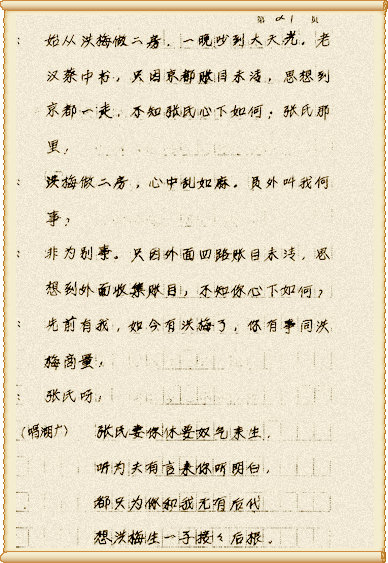 第 21 页
: 始从洪梅做二房,一晚吵到大天光。老
汉蔡中书,只因京都账目未清,思想到
京都一走,不知张氏心下如何;张氏那
里,
: 洪梅做二房,心中乱如麻。员外叫我何
事,
: 非为别事。只因外面四路账目未清,思
想到外面收集账目,不知你心下如何,
: 先前有我,如今有洪梅了,你有事同洪
梅商量,
: 张氏呀,
(唱湖广) 张氏妻你休要怒气来生,
听为夫有言来你听明白,
都只为你和我无有后代
想洪梅生一子接々后根.